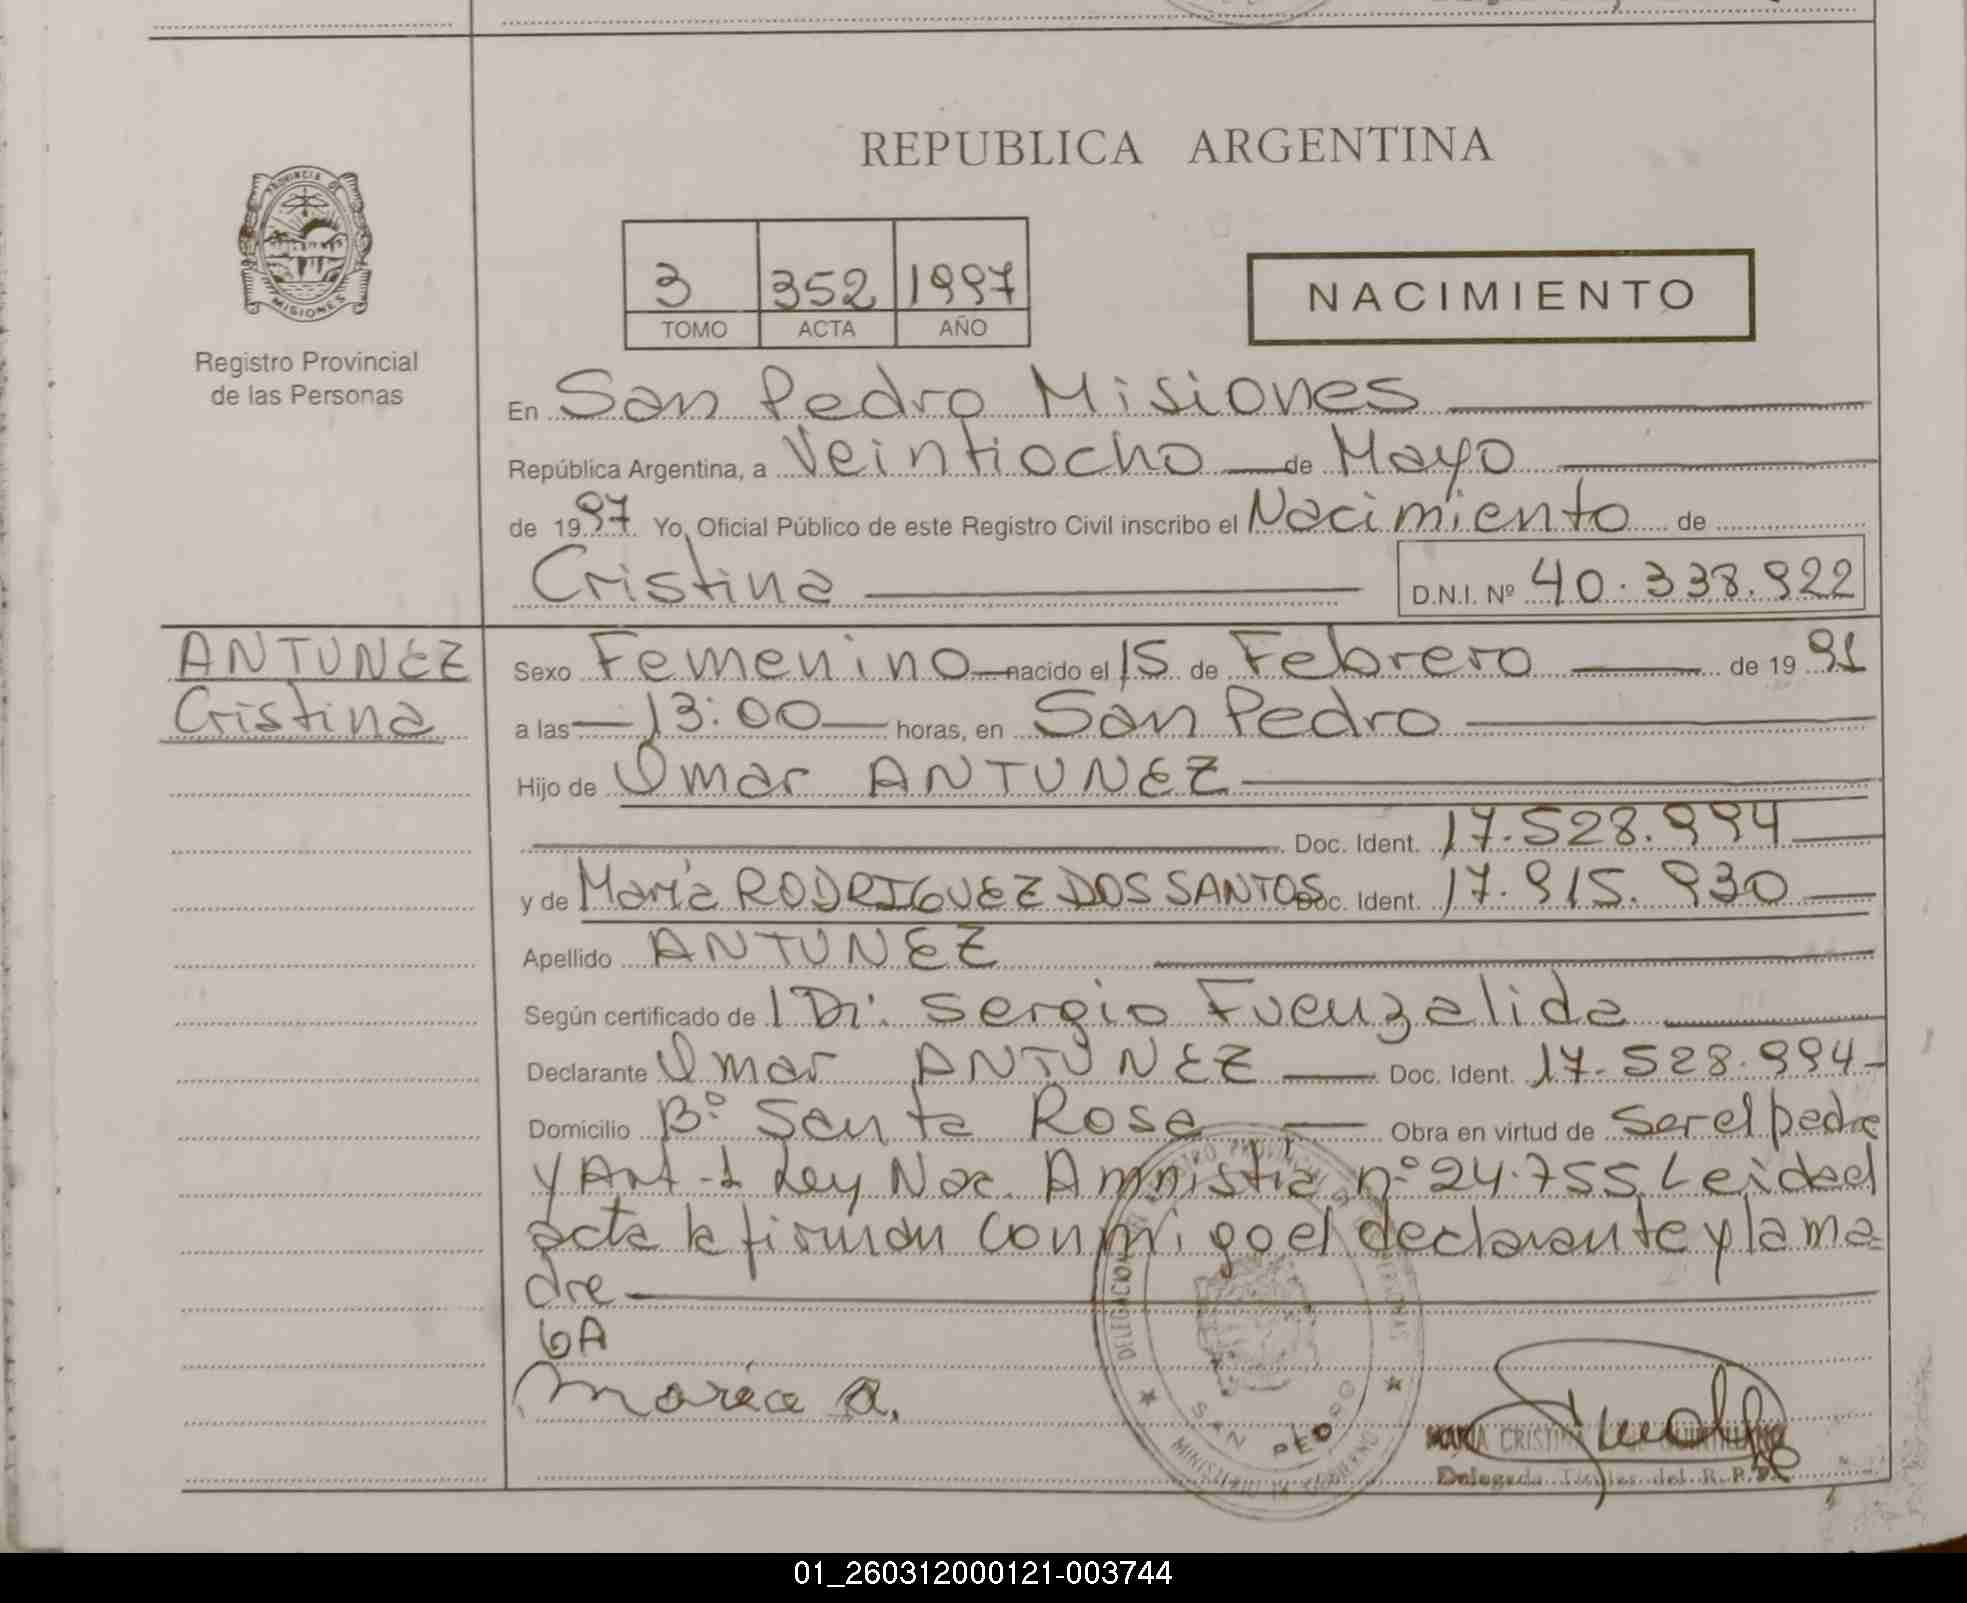 REPUBLICA ARGENTINA
PROVINCIA DE
MISIONES
Registro Provincial
de las Personas
3 352 1997
TOMO ACTA AÑO
NACIMIENTO
En San Pedro Misiones
República Argentina, a Veintiocho de Mayo
de 1997 Yo, Oficial Público de este Registro Civil inscribo el Nacimiento de
Cristina D.N.I. Nº 40.338.922
ANTUNEZ
Cristina
Sexo Femenino nacido el 15 de Febrero de 1991
a las 13:00 horas, en San Pedro
Hijo de Omar ANTUNEZ
Doc. Ident. 17.528.994
y de María RODRIGUEZ DOS SANTOS Doc. Ident. 17.915.930
Apellido ANTUNEZ
Según certificado de Dr. Sergio Fuenzalida
Declarante Omar ANTUNEZ Doc. Ident. 17.528.994
Domicilio Bº Santa Rosa Obra en virtud de ser el padre
y Art-1 Ley Nac. Amnistía nº 24.755 Leida el
acta la firman conmigo el declarante y la ma-
dre
María A.
SAN PEDRO
MARIA CRISTINA
Delegada Titular del R.P.P.
01_260312000121-003744